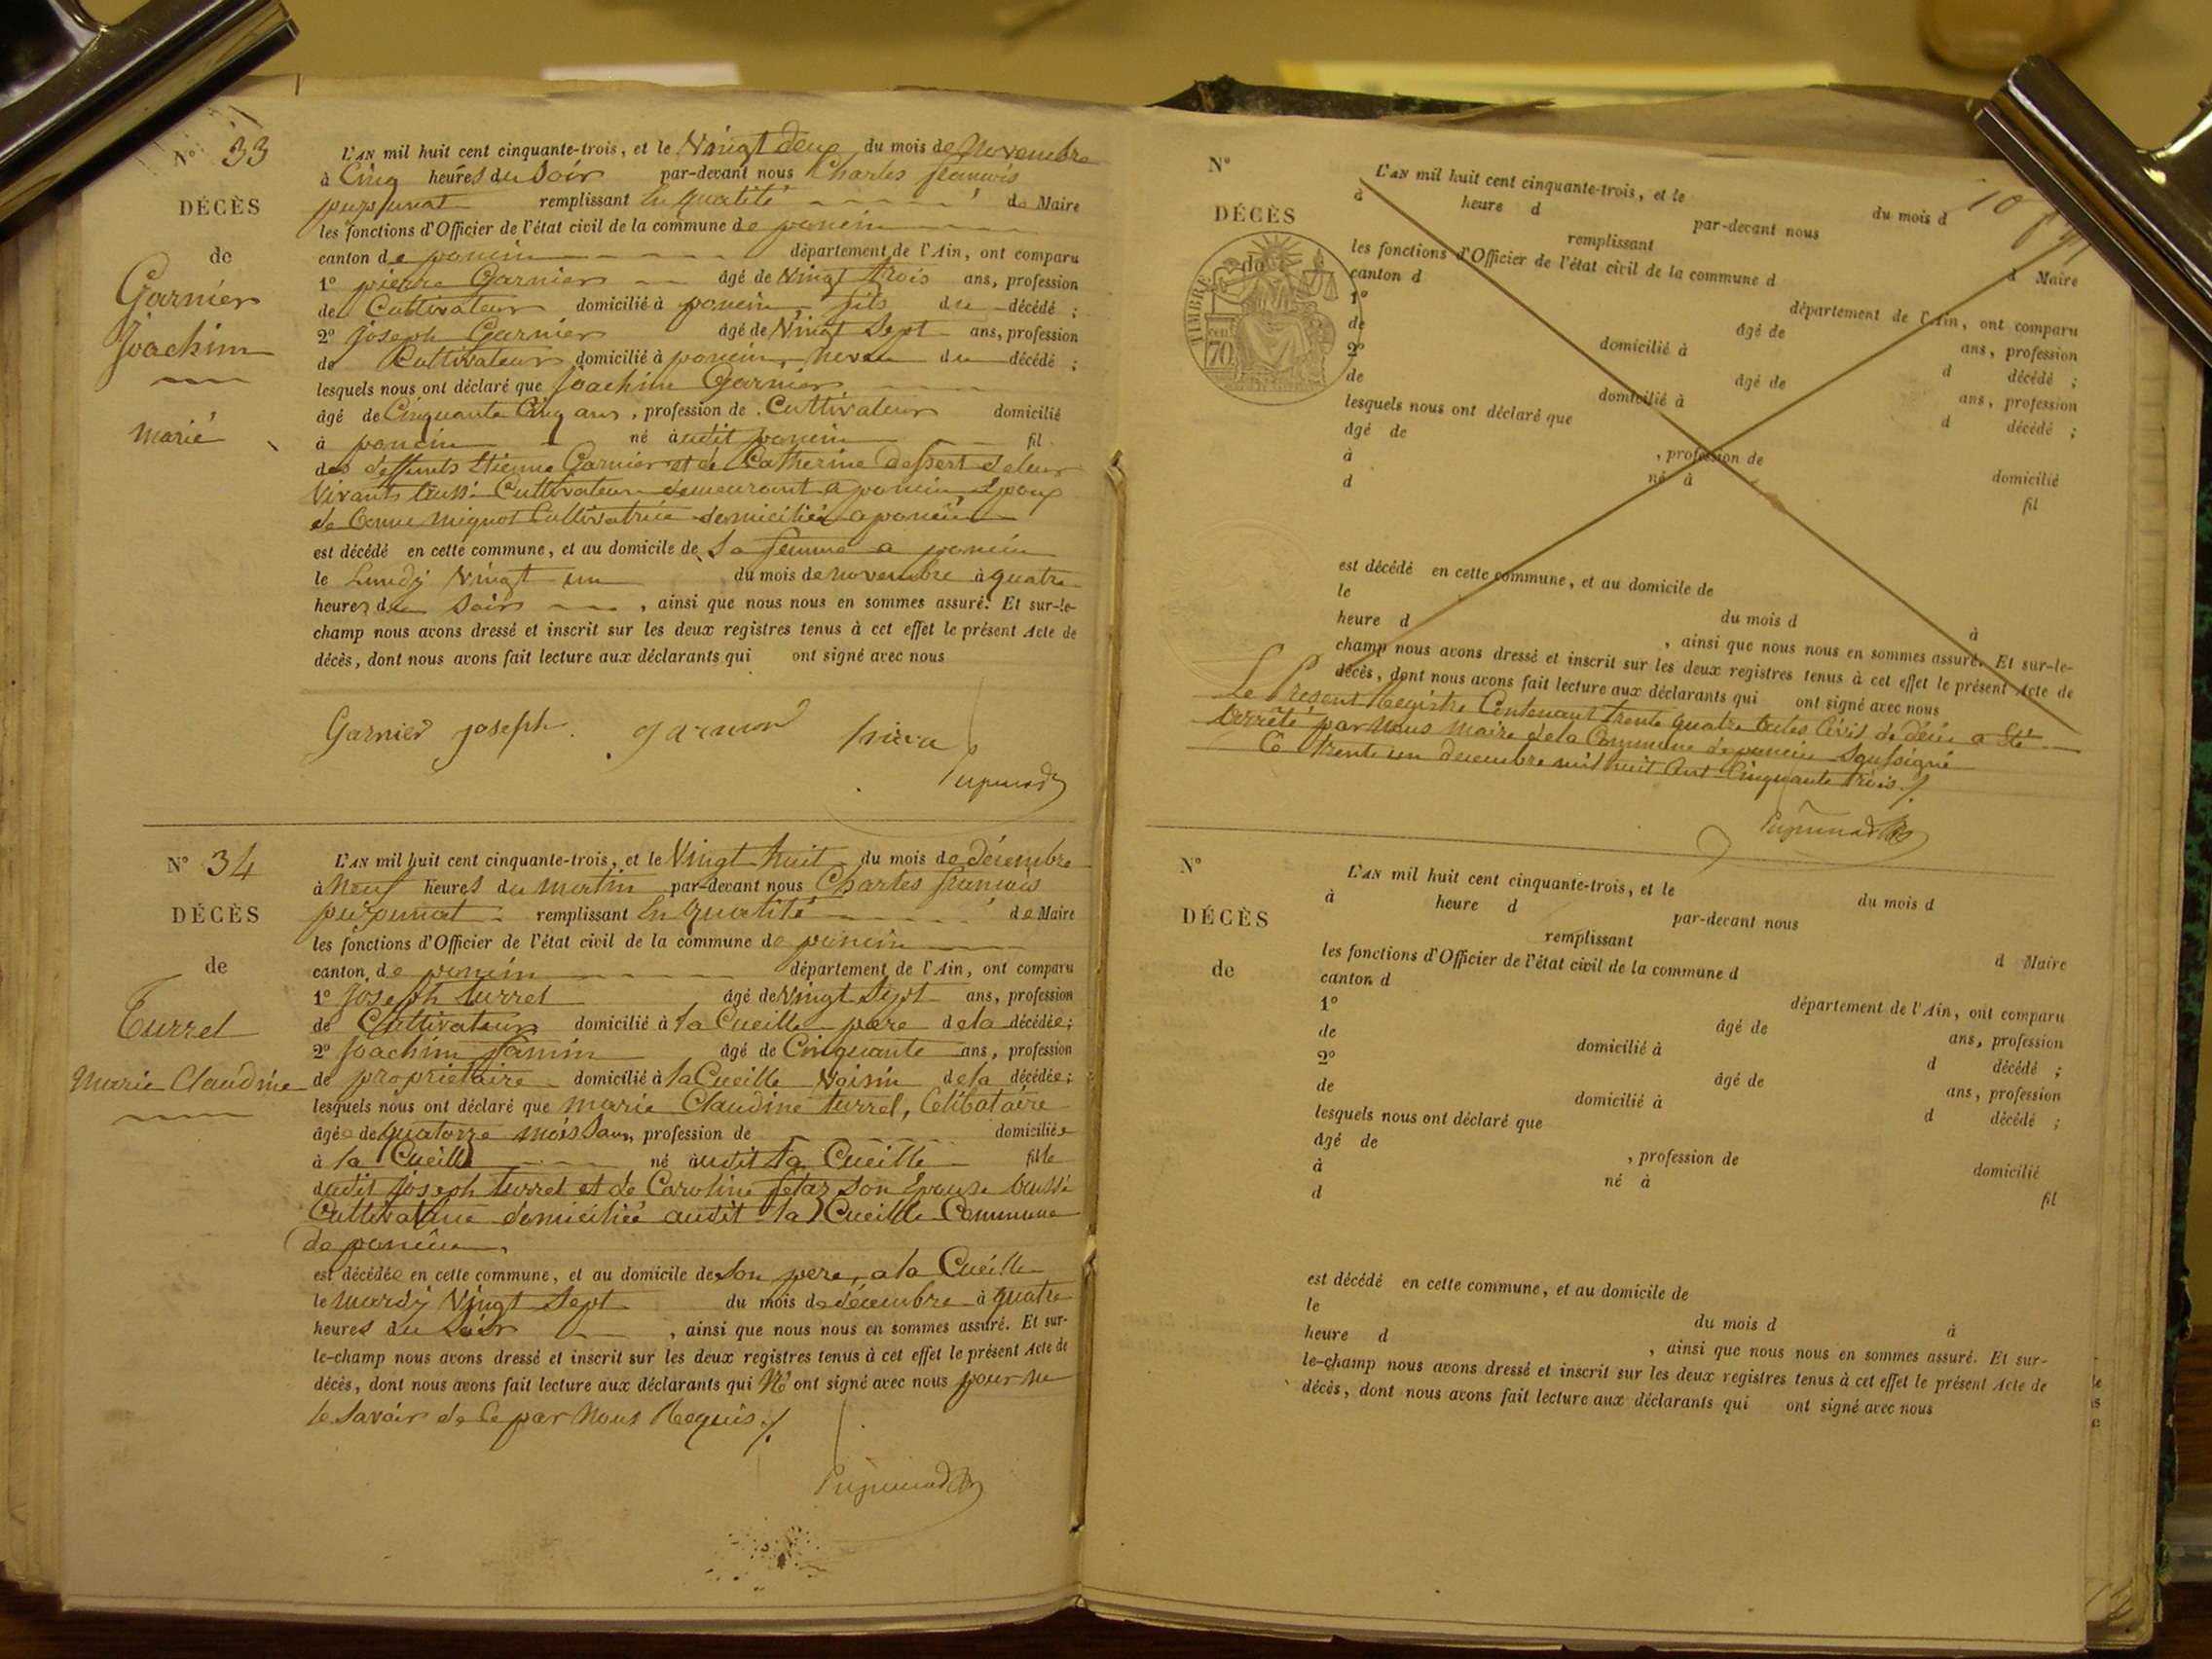 N° 33
DÉCÈS
de
Garnier
Joachim
marié
L'AN mil huit cent cinquante-trois, et le Vingt deux du mois de Novembre
à Cinq heures du Soir par-devant nous Charles françois
remplissant En qualité de Maire
les fonctions d'Officier de l'état civil de la commune de poncin
canton de poncin département de l'Ain, ont comparu
1° pierre Garnier âgé de Vingt trois ans, profession
de Cultivateur domicilié à poncin, fils du décédé ;
2° joseph Garnier âgé de Vingt Sept ans, profession
de Cultivateur domicilié à poncin, neveu du décédé ;
lesquels nous ont déclaré que Joachim Garnier
âgé de Cinquante Cinq ans, profession de Cultivateur domicilié
à poncin né àudit poncin fil
des deffunts Etienne Garnier et de Catherine de leur
Vivants Cultivateurs demeurant a poncin, Epoux
de mignot Cultivatrice domiciliée a poncin
est décédé en cette commune, et au domicile de Sa femme a poncin
le Lundy Vingt un du mois de novembre à quatre
heures du Soir , ainsi que nous nous en sommes assuré. Et sur-le-
champ nous avons dressé et inscrit sur les deux registres tenus à cet effet le présent Acte de
décès, dont nous avons fait lecture aux déclarants qui ont signé avec nous
Garnier joseph.
N° 34
DÉCÈS
de
Turrel
Marie Claudine
L'AN mil huit cent cinquante-trois, et le Vingt huit du mois de décembre
à Neuf heures du matin par-devant nous Charles françois
remplissant En qualité de Maire
les fonctions d'Officier de l'état civil de la commune de poncin
canton de poncin département de l'Ain, ont comparu
1° Joseph turrel âgé de Vingt Sept ans, profession
de Cultivateur domicilié à la Cueille père de la décédée ;
2° Joachim Jamin âgé de Cinquante ans, profession
de propriétaire domicilié à la Cueille Voisin de la décédée ;
lesquels nous ont déclaré que marie Claudine turrel, Celibataire
âgée de quatorze mois Sans, profession de domiciliée
à la Cueille né àudit la Cueille fille
dudit Joseph turrel et de Caroline son Epouse
Cultivatrice domiciliée audit la Cueille Commune
de poncin
est décédée en cette commune, et au domicile de Son père, a la Cueille
le mardy Vingt Sept du mois de décembre à quatre
heures du Soir , ainsi que nous nous en sommes assuré. Et sur-
le-champ nous avons dressé et inscrit sur les deux registres tenus à cet effet le présent Acte de
décès, dont nous avons fait lecture aux déclarants qui N' ont signé avec nous pour ne
le Savoir de Ce par Nous Requis ./.
N°
DÉCÈS
de
TIMBRE
cen
70
10
L'AN mil huit cent cinquante-trois, et le du mois d
à heure d par-devant nous
remplissant d Maire
les fonctions d'Officier de l'état civil de la commune d
canton d département de l'Ain, ont comparu
1° âgé de ans, profession
de domicilié à d décédé ;
2° âgé de ans, profession
de domicilié à d décédé ;
lesquels nous ont déclaré que
âgé de , profession de domicilié
à né à fil
d
est décédé en cette commune, et au domicile de
le du mois d à
heure d , ainsi que nous nous en sommes assuré. Et sur-le-
champ nous avons dressé et inscrit sur les deux registres tenus à cet effet le présent Acte de
décès, dont nous avons fait lecture aux déclarants qui ont signé avec nous
Le Present Registre Contenant trente quatre actes Civil de décès a Eté
arrêté par Nous Maire de la Commune de poncin Soussigné
Ce trente un decembre mil huit Cent Cinquante trois ./.
N°
DÉCÈS
de
L'AN mil huit cent cinquante-trois, et le du mois d
à heure d par-devant nous
remplissant d Maire
les fonctions d'Officier de l'état civil de la commune d
canton d département de l'Ain, ont comparu
1° âgé de ans, profession
de domicilié à d décédé ;
2° âgé de ans, profession
de domicilié à d décédé ;
lesquels nous ont déclaré que
âgé de , profession de domicilié
à né à fil
d
est décédé en cette commune, et au domicile de
le du mois d à
heure d , ainsi que nous nous en sommes assuré. Et sur-
le-champ nous avons dressé et inscrit sur les deux registres tenus à cet effet le présent Acte de
décès, dont nous avons fait lecture aux déclarants qui ont signé avec nous